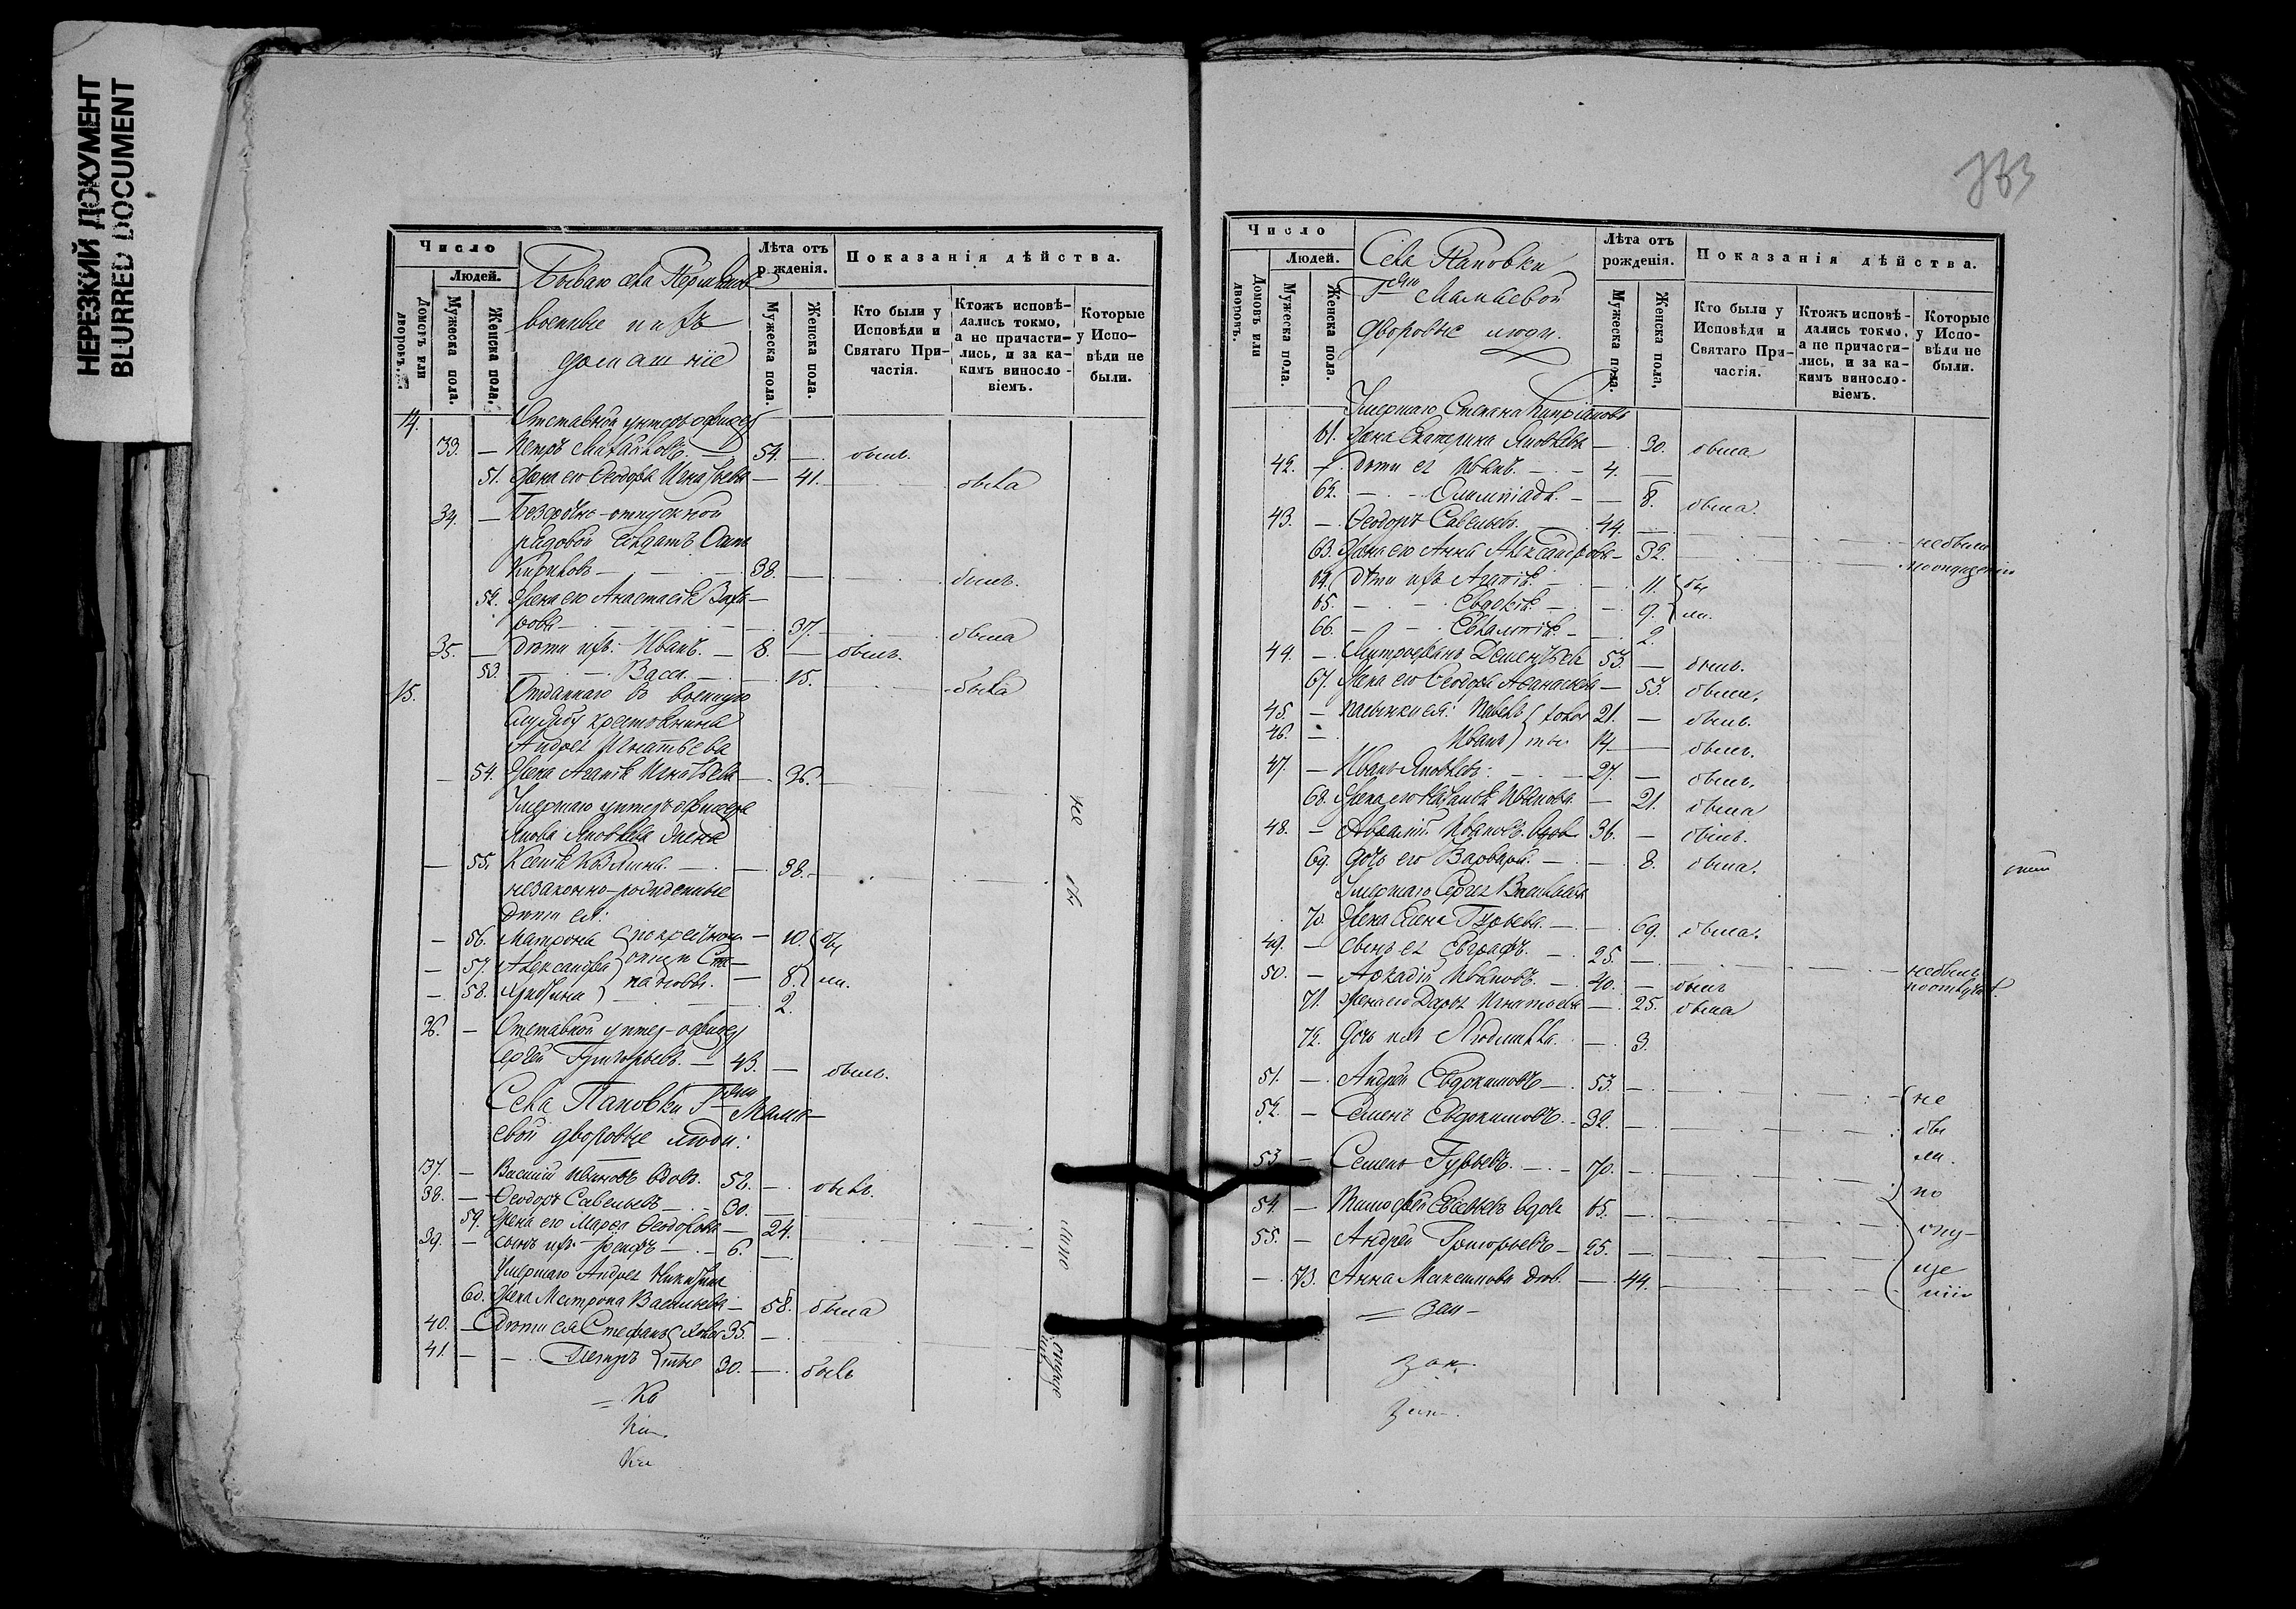 НЕРЕЗКИЙ ДОКУМЕНТ
BLURRED DOCUMENT
Число
Людей.
Домовъ или дворовъ.
Мужеска пола.
Женска пола.
села
военные и ихъ
домашніе
Лѣта отъ рожденія.
Мужеска пола.
Женска пола.
Показанія дѣйства.
Кто были у Исповѣди и Святаго Причастія.
Ктожъ исповѣдались токмо, а не причастились, и за какимъ винословіемъ.
Которые у Исповѣди не были.
14. Отставный унтеръ офицеръ
33. — Петръ Михайловъ. — 54. — былъ.
51. Жена его Ѳеодора Игнатьева — 41. была
34. — Безсрочно-отпускной
рядовой солдатъ
Кириловъ — 38. — былъ.
52. Жена его Анастасія
37. — была
35. — Дѣти ихъ: Иванъ. — 8. — былъ.
53. Васса. — 15. была
15. Отданнаго въ военную
службу крестьянина
Андрея Игнатьева
— 54. Жена Агапія Игнатьева — 36.
Умершаго унтеръ офицера
Якова Яковлева жена
— 55. Ксенія — 38.
незаконно-рожденные
дѣти ея:
— 56. Матрона — 10. бы
— 57. Александра — 8. ли.
— 58. Христина 2.
36. — Отставной унтер-офицеръ
Сергей Григорьевъ. — 43. — былъ.
Села Пановки Г-жи Мама-
евой дворовые люди:
37. — Василій Ивановъ вдов. 52. — былъ.
38. — Ѳеодоръ Савельевъ 30. —
59. Жена его Марѳа Ѳеодорова — 24.
39. — Сынъ ихъ 6. —
Умершаго Андрея Никитина
60. Жена Матрона Васильева — 58. была
40. — Дѣти ея Стефанъ холос 35. —
41. — Петръ тые 30. — былъ
не
бы
ли по
Число
Людей.
Домовъ или дворовъ.
Мужеска пола.
Женска пола.
Села Пановки
Г-жи Мамаевой
дворовые люди.
Лѣта отъ рожденія.
Мужеска пола.
Женска пола.
Показанія дѣйства.
Кто были у Исповѣди и Святаго Причастія.
Ктожъ исповѣдались токмо, а не причастились, и за какимъ винословіемъ.
Которые у Исповѣди не были.
Умершаго Степана Кипріанова
61. Жена Екатерина Яковлева — 30. была
42. — Дѣти ея Иванъ. — 4. —
62. — Олимпіада. — 8. была.
43. — Ѳеодоръ Савельевъ. 44. — небыли
63. Жена его Анна Александрова — 32. по опущенію
64. Дѣти ихъ Агапія. — 11. бы
65. — Евдокія — 9. ли.
66. — Евлампія — 2.
44. — Митрофанъ Дементьевъ 53. — былъ.
67. Жена его Ѳеодора Аѳанасьева — 53. была.
45. — Пасынки ея: Павелъ холос 21. — былъ.
46. — Иванъ тые 14. — былъ.
47. — Иванъ Яковлевъ. 27. — былъ.
68. Жена его Наталія Иванова — 21. была
48. — Ивановъ вдов. 36. — былъ.
69. Дочь его Варвара. — 8. была.
Умершаго Сергея Васильева
70. Жена Елена Гурьева. — 69. была.
49. — Сынъ ея Евграфъ. — 25. — небылъ
50. — Аркадій Ивановъ. — 40. — былъ
71. Жена его Дарья Игнатьева — 25. была
72. Дочь ихъ Людмила. — 3.
51. — Андрей Евдокимовъ — 53. — не
52. — Семенъ Евдокимовъ. — 32. — бы
53. — Семенъ Гурьевъ. — 70. — ли
по
54. — Тимофей вдов 65. —
опу-
55. — Андрей Григорьевъ — 25. —
ще
— 73. Анна Максимова — 44.
нію